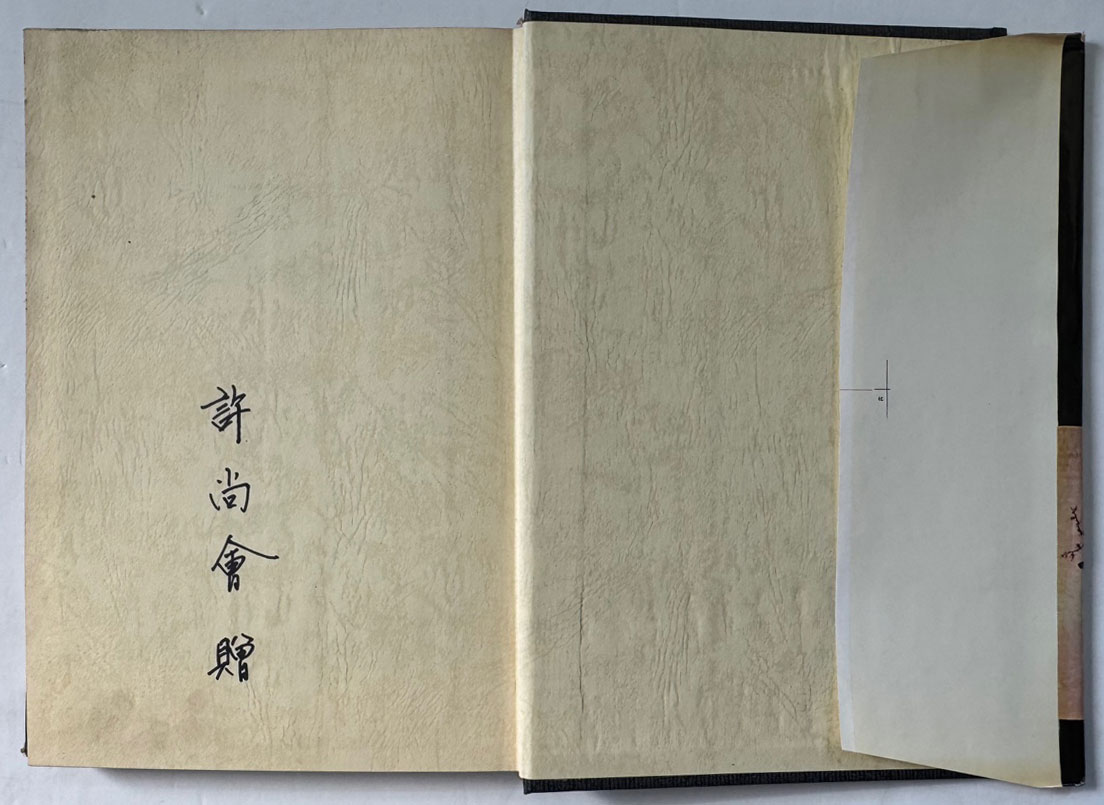 許尚會贈